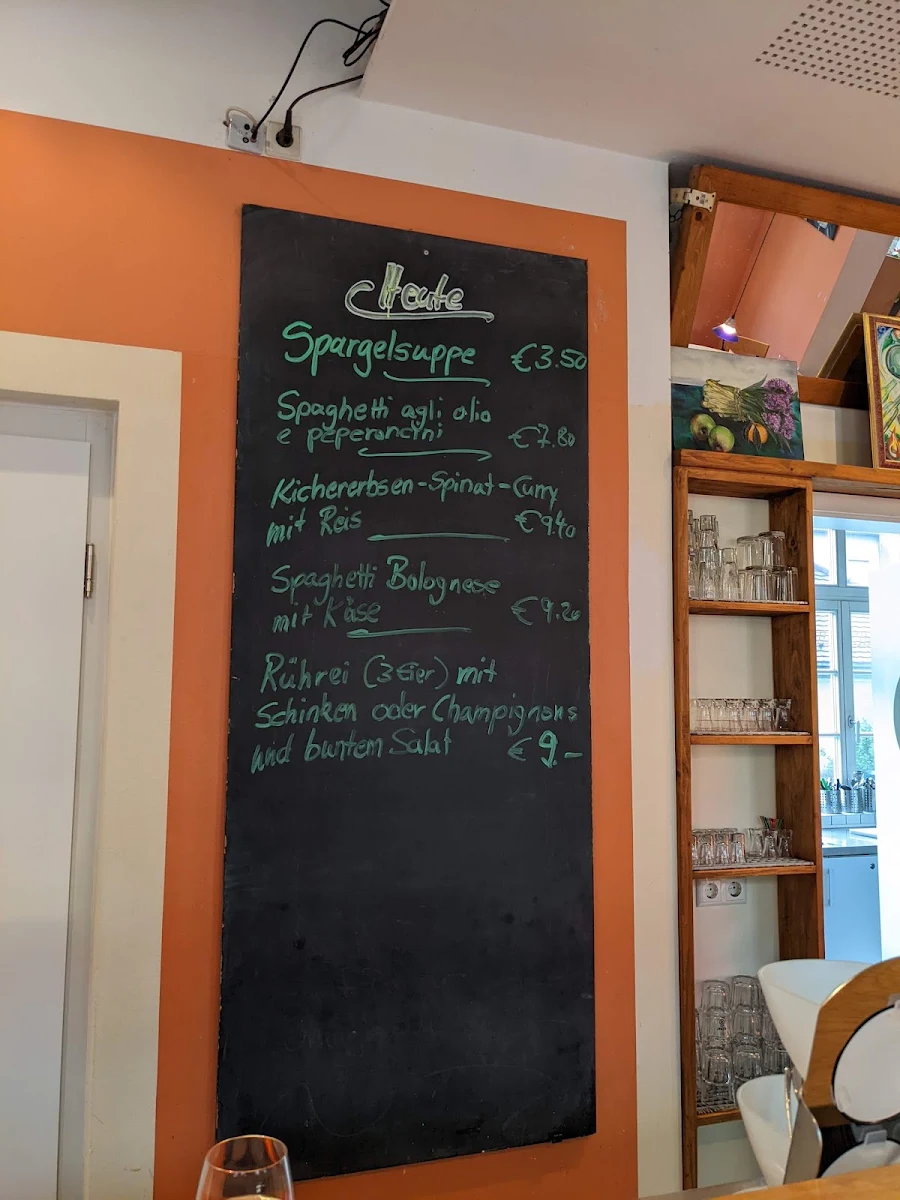 Heute
Spargelsuppe €3.50
Spaghetti agli olio
e peperoncini €7.80
Kichererbsen-Spinat-Curry
mit Reis €9.40
Spaghetti Bolognese
mit Käse €9.20
Rührei (3 Eier) mit
Schinken oder Champignons
und buntem Salat €9.-